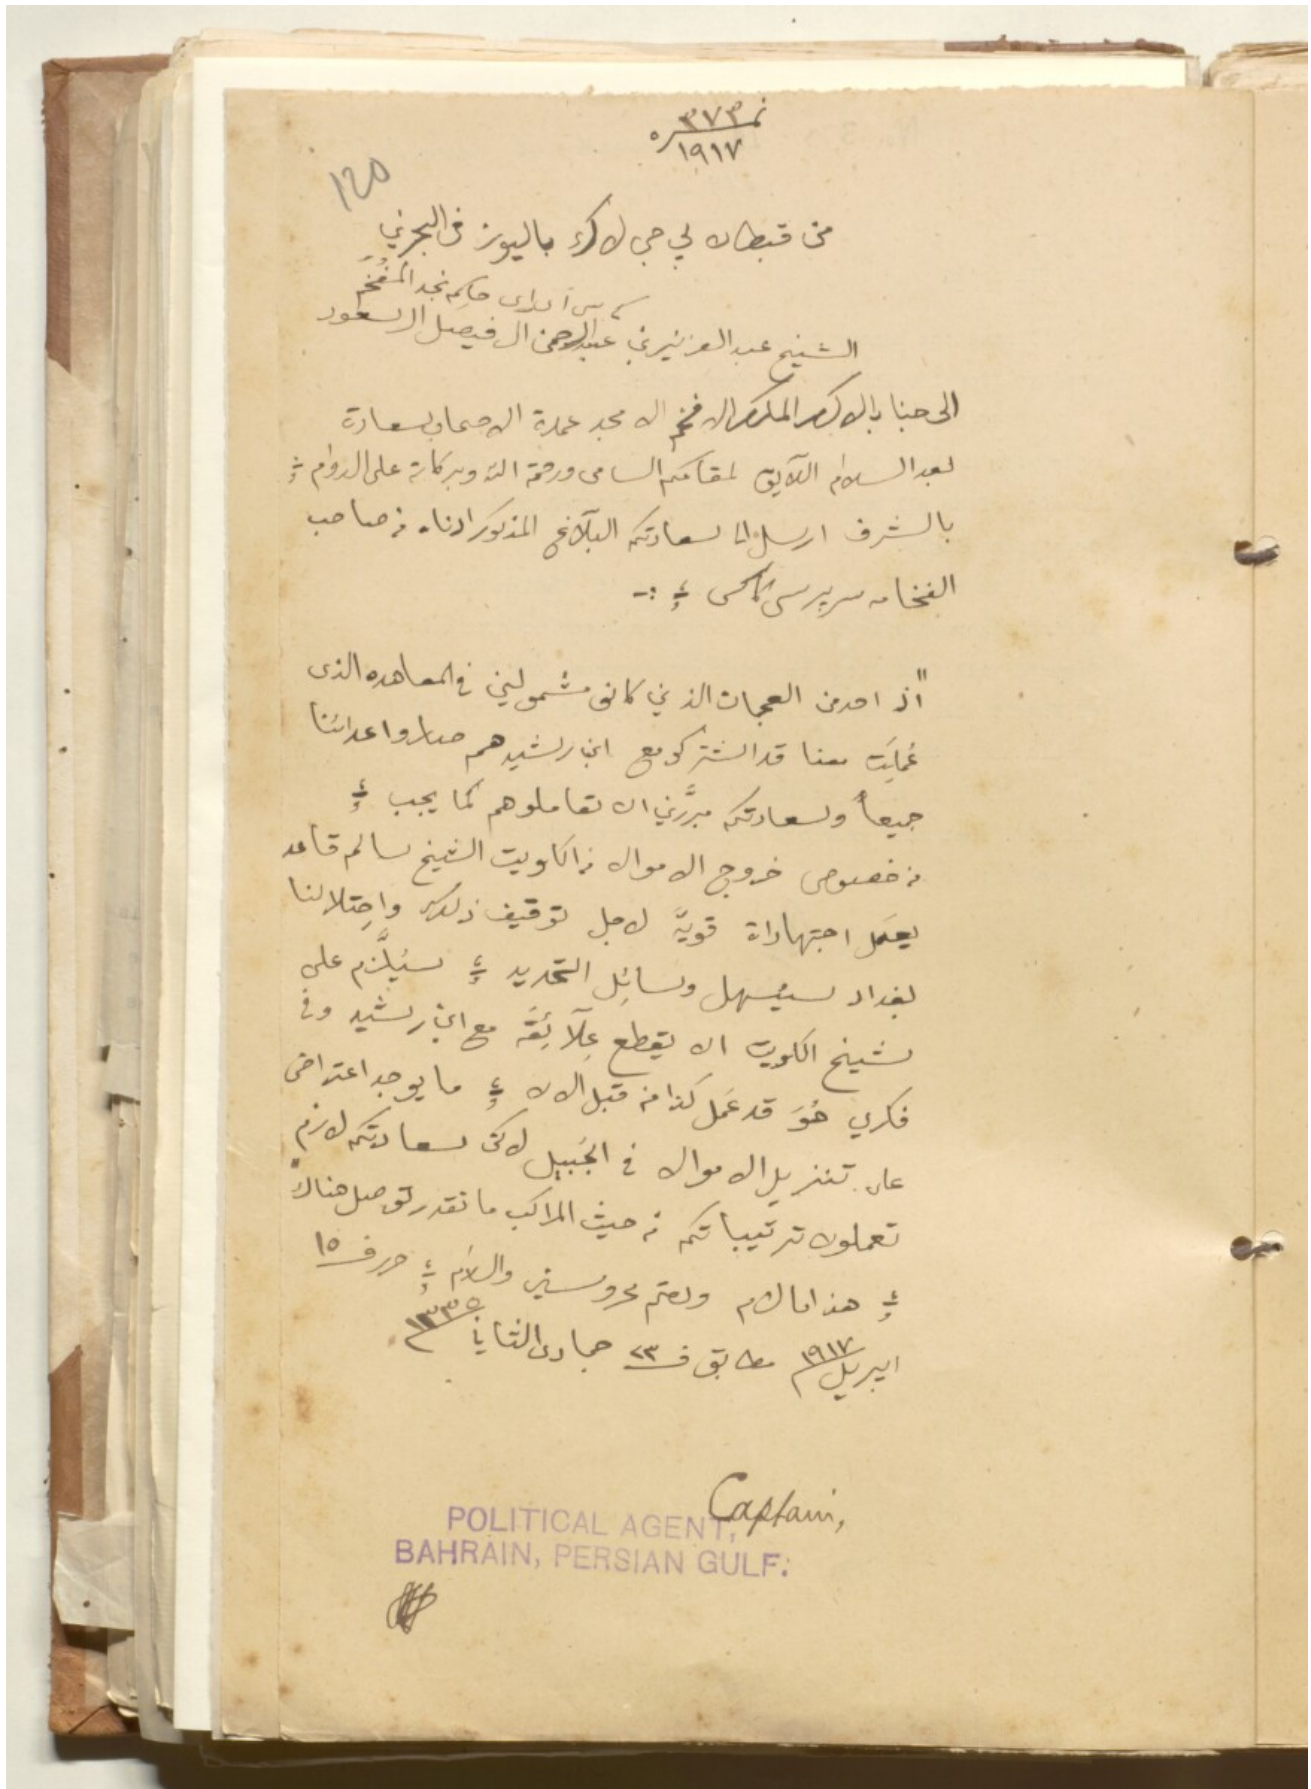 نمره ٣٧٣
١٩١٧
125
من قبطان لي جي لاك باليوز في البحرين
كي سي آي اي حاكم نجد المفخم
الشيخ عبد العزيز بن عبد الرحمن ال فيصل ال سعود
الى جناب الاكرم المكرم الافخم الامجد عمدة الاصحاب سعادة
بعد السلام اللآيق لمقامكم السامي ورحمة الله وبركاته على الدوام
بالشرف ارسل الى سعادتكم البلآغ المذكور ادناه من صاحب
الفخامه سر پرسي كاكس :-
"اذا احد من العجمان الذين كانوا مشمولين في المعاهده الذي
عُمِلَت معنا قد اشتركوا مع ابن رشيد هم صاروا اعدائنا
جميعاً وسعادتكم مبرَّرين ان تعاملوهم كما يجب
من خصوص خروج الاموال من الكويت الشيخ سالم قاعد
يعمل اجتهادات قويَّه لاجل توقيف ذلك واحتلالنا
بغداد سيُسهل وسائِل التحديد سيُلَّزم على
شيخ الكويت ان يقطع عِلآئِقَه مع ابن رشيد وفي
فكري هُوَ قد عَمل كذا من قبل الان ما يوجد اعتراض
على تنزيل الاموال في الجُبيل لاكن سعادتكم لازم
تعملون ترتيباتكم من حيث المراكب ما تقدر توصل هناك"
هذا ما لزم ودمتم محروسين والسلام حرر في ١٥
ابريل ١٩١٧ مطابق في ٢٣ جمادى الثاني ١٣٣٥
Captain,
POLITICAL AGENT,
BAHRAIN, PERSIAN GULF.